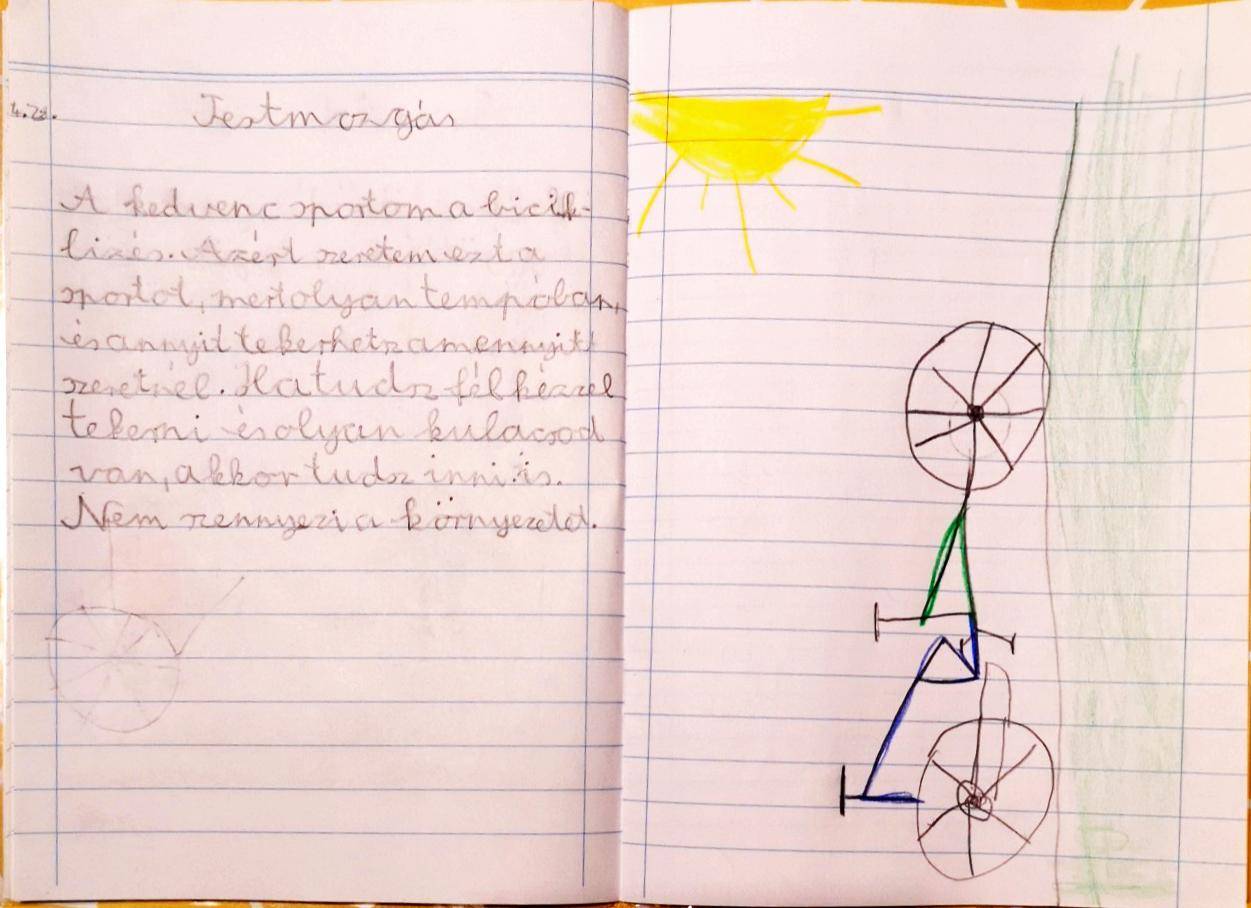 4.28.
Testmozgás
A kedvenc sportom a bicik-
lizés. Azért szeretem ezt a
sportot, mert olyan tempóban,
és annyit tekerhetsz amennyit
szeretnél. Ha tudsz fél kézzel
tekerni és olyan kulacsod
van, akkor tudsz inni is.
Nem szennyezi a környezetet.